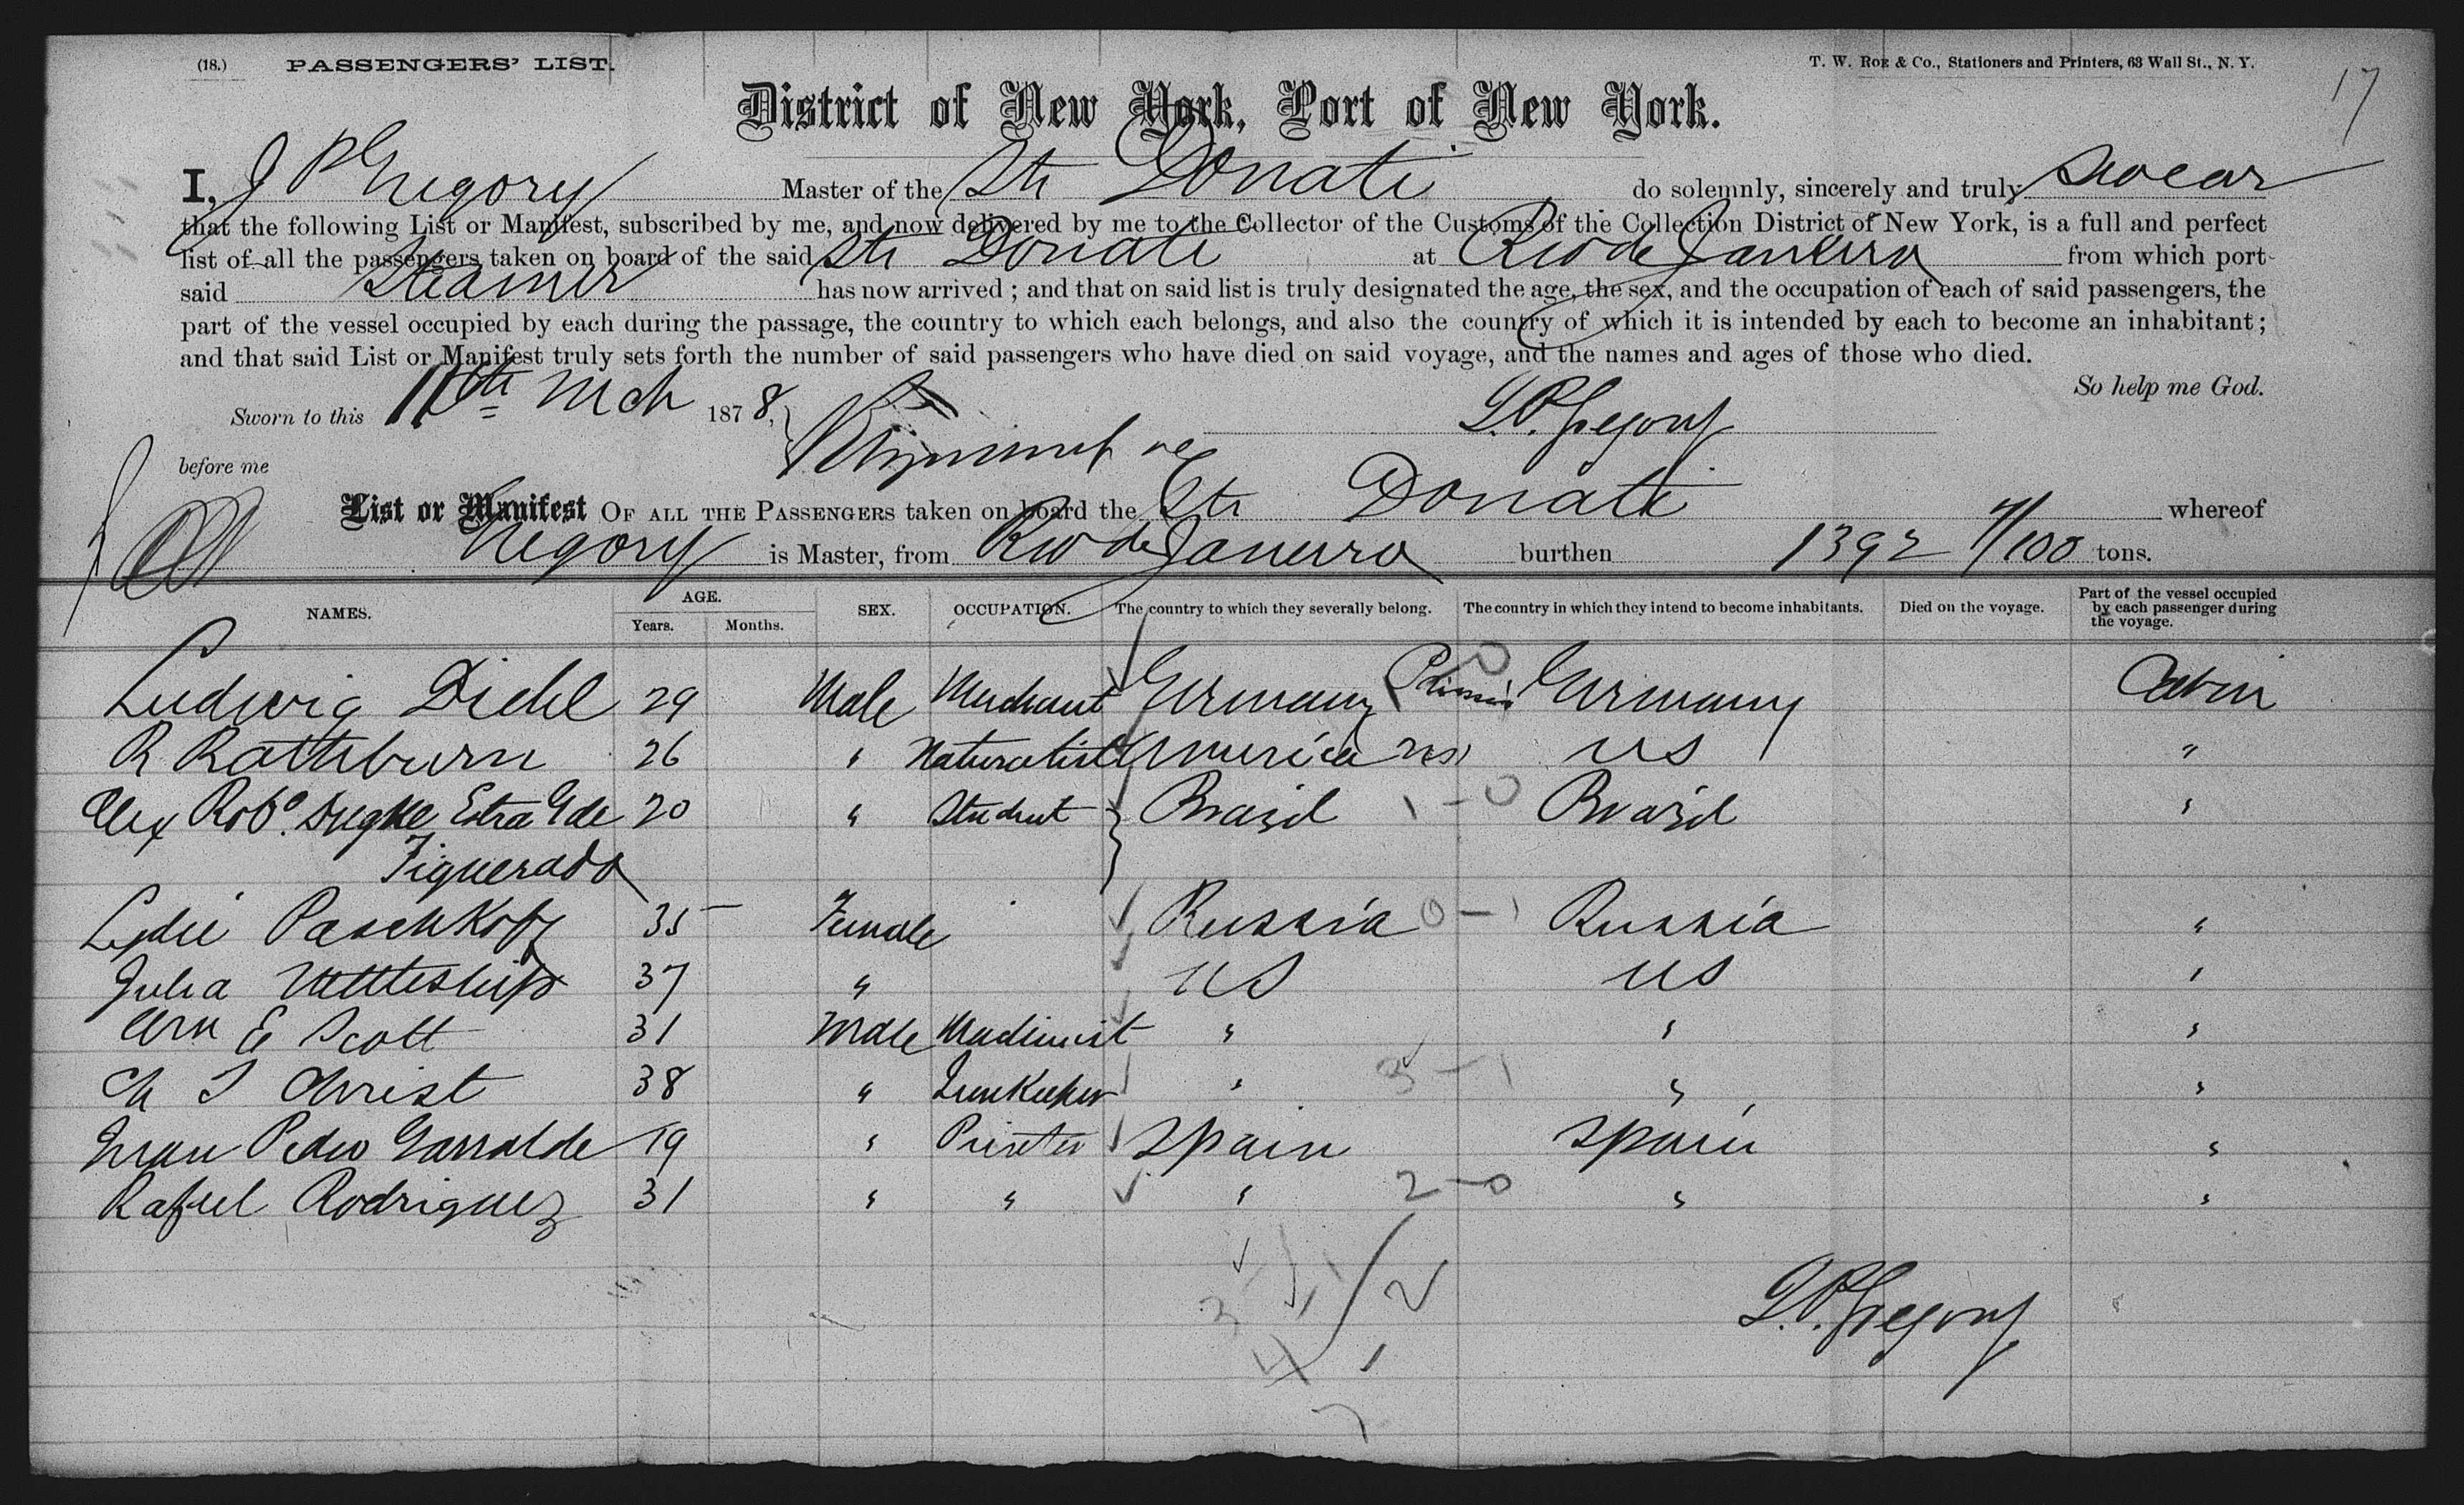 (18.) PASSENGERS' LIST. T. W. ROE & Co., Stationers and Printers, 63 Wall St., N. Y.
17
District of New York, Port of New York.
I, J P Gregory Master of the Str Donati do solemnly, sincerely and truly swear
that the following List or Manifest, subscribed by me, and now delivered by me to the Collector of the Customs of the Collection District of New York, is a full and perfect
list of all the passengers taken on board of the said Str Donati at Rio de Janeiro from which port
said Steamer has now arrived ; and that on said list is truly designated the age, the sex, and the occupation of each of said passengers, the
part of the vessel occupied by each during the passage, the country to which each belongs, and also the country of which it is intended by each to become an inhabitant ;
and that said List or Manifest truly sets forth the number of said passengers who have died on said voyage, and the names and ages of those who died.
So help me God.
Sworn to this Mch 1878, Gregory
before me
List or Manifest OF ALL THE PASSENGERS taken on board the Str Donati whereof
Gregory is Master, from Rio de Janeiro burthen 1392 /100 tons.
NAMES. AGE. Years. Months. SEX. OCCUPATION. The country to which they severally belong. The country in which they intend to become inhabitants. Died on the voyage. Part of the vessel occupied by each passenger during the voyage.
Ludwig Diehl 29 Male Merchant Germany Germany Cabin
R Rathburn 26 " Naturalist America US "
Alex Robo. Estra Gde 20 " Student Brazil 1-0 Brazil "
Figuerado
Lydie Paschkoff 35 Female Russia 0-1 Russia "
Julia 37 " US US "
Wm E Scott 31 Male Machinist " " "
Ch T Christ 38 " Innkeeper " 3-1 " "
Juan Pedro Garralde 19 " Printer Spain Spain "
Rafael Rodriguez 31 " " " 2-0 " "
Gregory